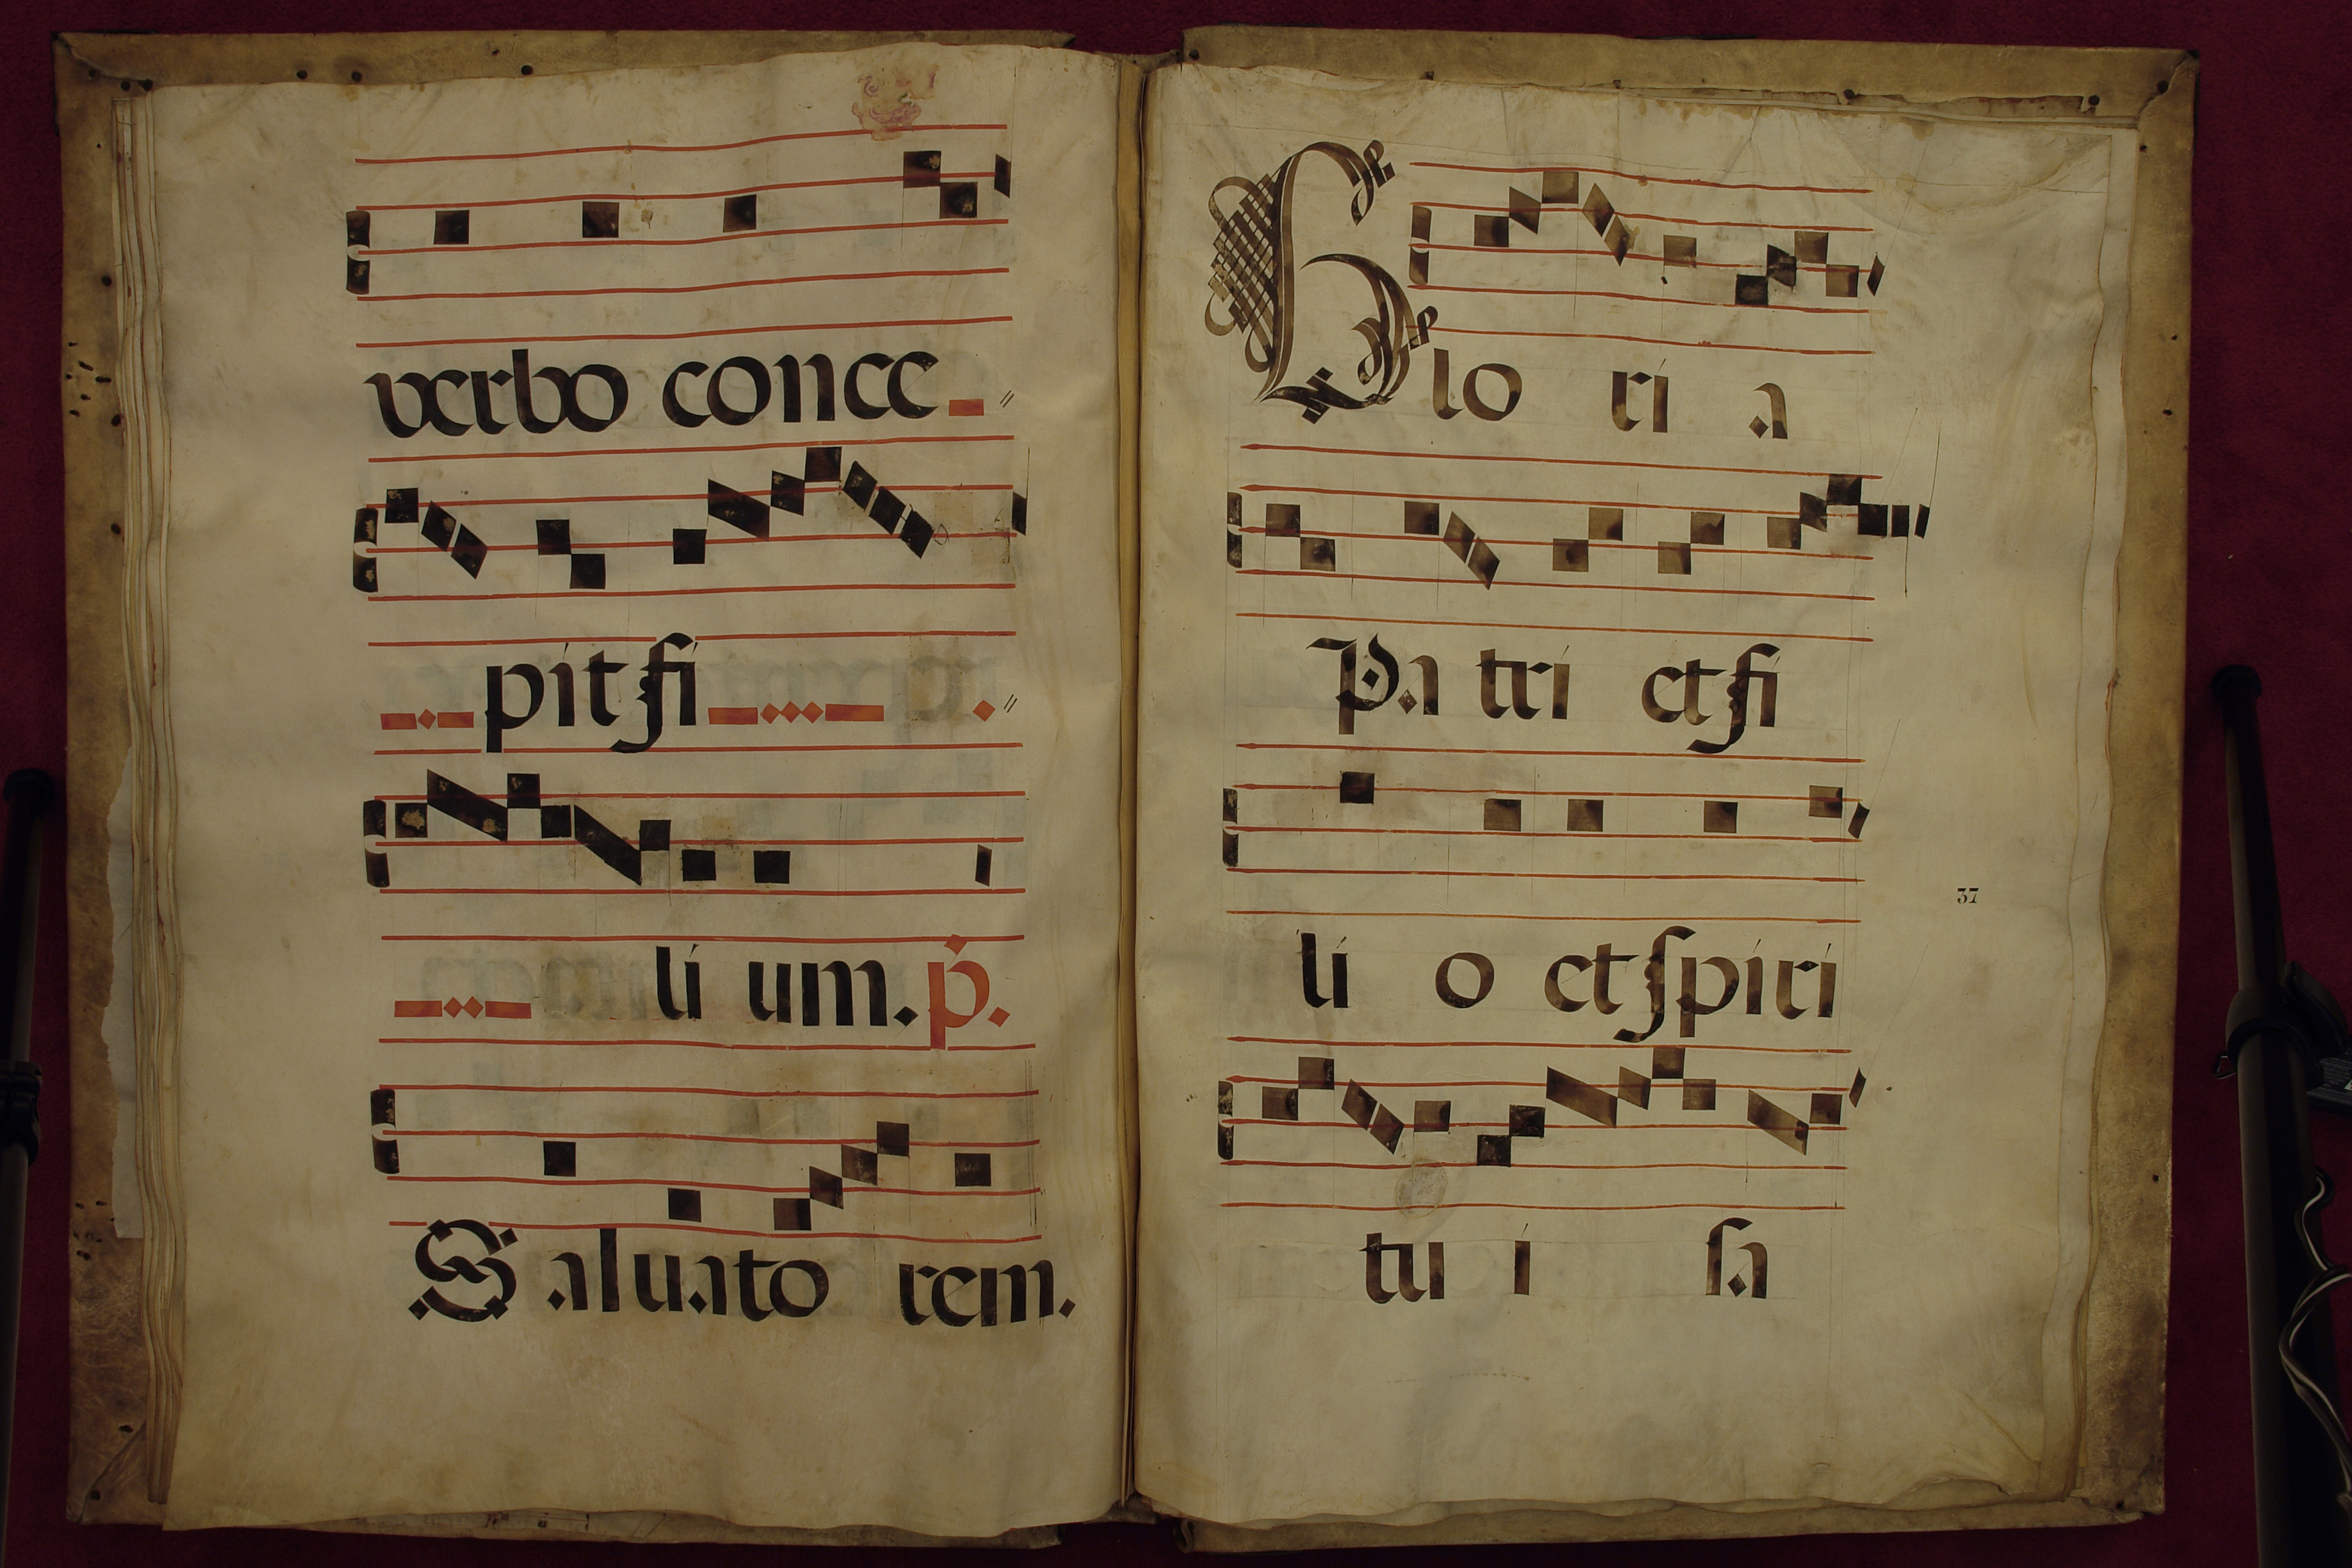 verbo conce
pit fi
li um. p.
Saluato rem.
Glo ri a
Pa tri et fi
li o et spiri
37
tu i sa